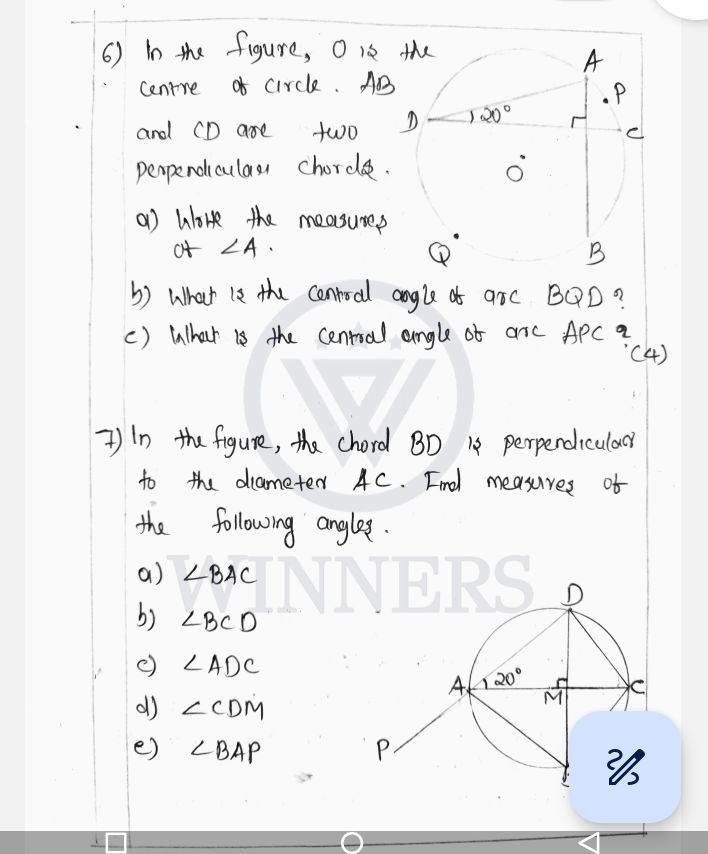 6) In the figure, O is the
centre of circle. AB
and CD are two
perpendicular chords.
a) Write the measures
of ∠A.
b) What is the central angle of arc BQD?
c) What is the central angle of arc APC?
(4)
A
P
D
20°
C
O
Q
B
7) In the figure, the chord BD is perpendicular
to the diameter AC. Find measures of
the following angles.
WINNERS
a) ∠BAC
b) ∠BCD
c) ∠ADC
d) ∠CDM
e) ∠BAP
D
A
20°
M
C
P